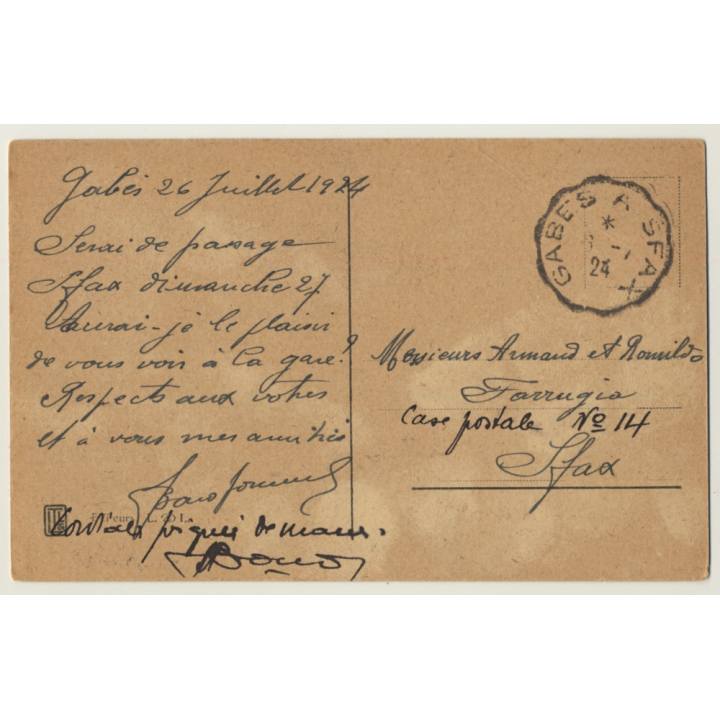 Gabès 26 Juillet 1924
Serai de passage
Sfax dimanche 27
Aurai-je le plaisir
de vous voir à la gare?
Respects aux votres
et à vous mes amitiés
Cordiale poignée de mains.
Editeurs L.
GABES A SFAX
*
24
Messieurs Armand et Romildo
Farrugia
Case postale No 14
Sfax